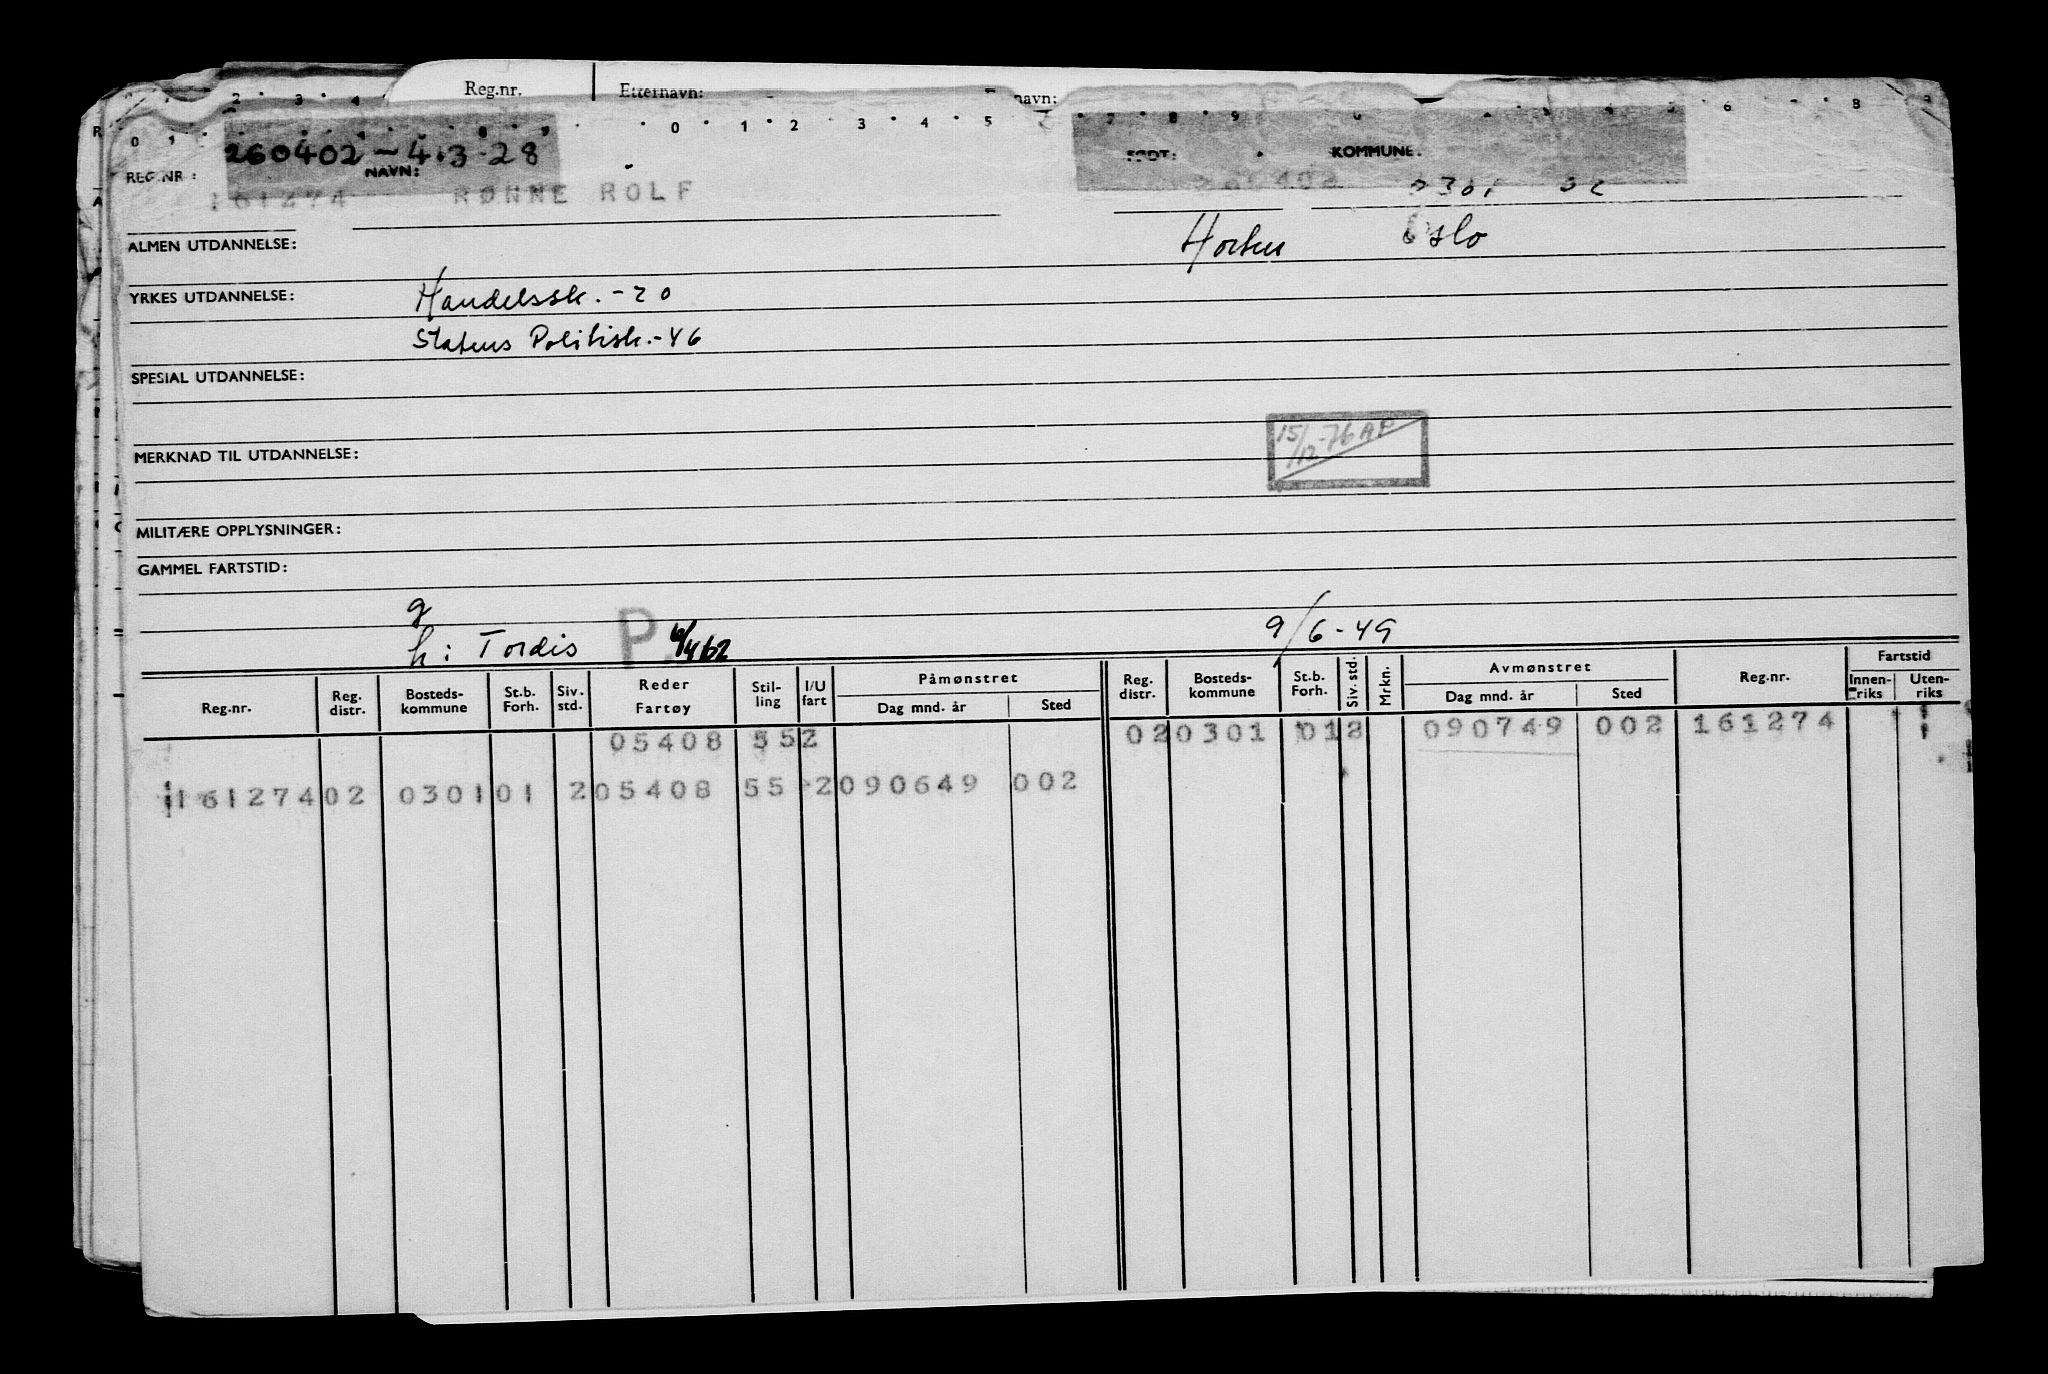 Reg.nr. Etternavn: navn:
2 3 4 6 8
0 1 0 1 2 3 4 5 7 8 9
260402 - 4.3.28
REG.NR.: NAVN: FØDT: KOMMUNE:
161274 RØNNE ROLF 0301 02
Horten Oslo
ALMEN UTDANNELSE:
YRKES UTDANNELSE: Handelssk. - 20
Statens Politisk. - 46
SPESIAL UTDANNELSE:
15/12-76 AP
MERKNAD TIL UTDANNELSE:
MILITÆRE OPPLYSNINGER:
GAMMEL FARTSTID:
g
h: Tordis P. 6/4 62 9/6-49
Reg.nr. Reg. distr. Bosteds-kommune St.b. Forh. Siv. std. Reder Fartøy Stil-ling I/U fart Påmønstret Dag mnd. år Sted Reg. distr. Bosteds-kommune St.b. Forh. Siv. std. Mrkn. Avmønstret Dag mnd. år Sted Reg.nr. Fartstid Innen-riks Uten-riks
05408 55 2 02 0301 01 2 090749 002 161274 1
161274 02 0301 01 2 05408 55 2 090649 002